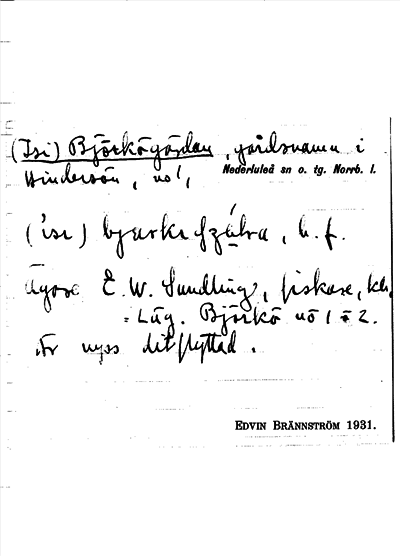 (Isi) Björkögårdan, gårdsnamn i
Hindersön, no 1, Nederluleå sn o. tg. Norrb. l.
('isi) bjurke, b. f.
Ägare E. W. Sundling, fiskare, kb.
= Läg. Björkö no 1 o 2.
Är nyss ditflyttad.
EDVIN BRÄNNSTRÖM 1931.